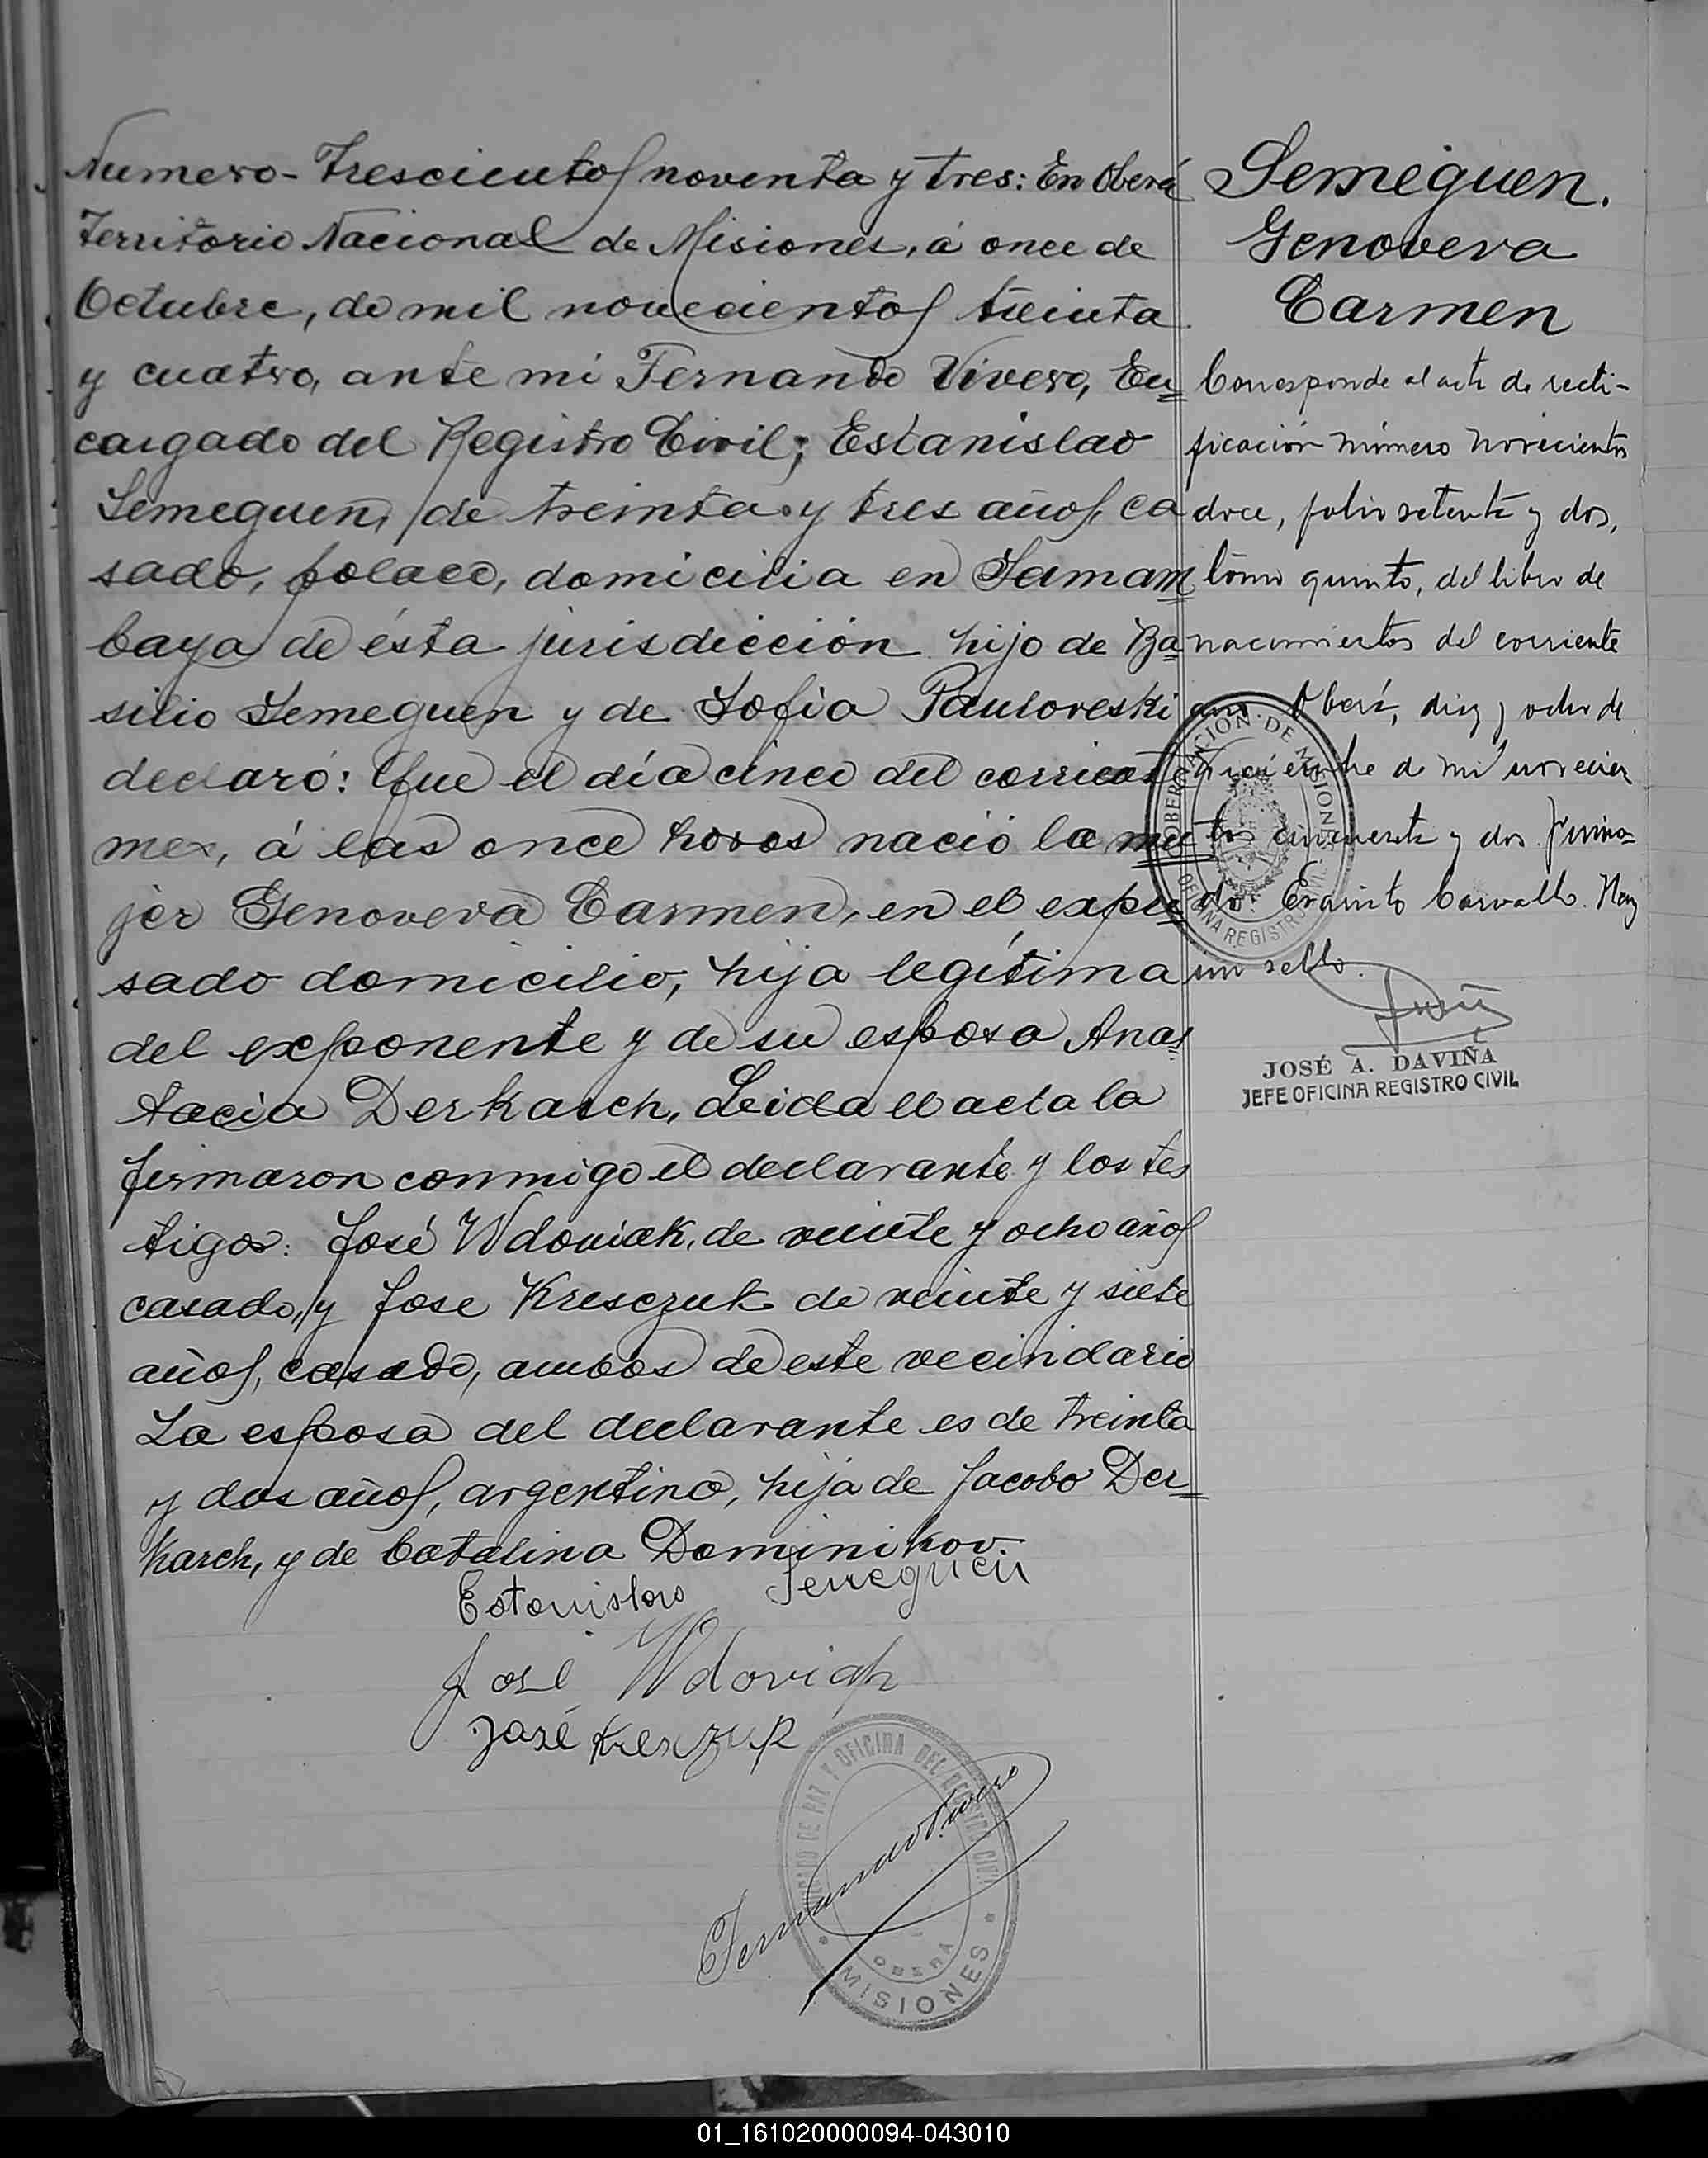 Numero - Trescientos noventa y tres: En Oberá
Territorio Nacional de Misiones, á once de
Octubre, de mil novecientos treinta
y cuatro, ante mi Fernando Vivero, En=
cargado del Registro Civil; Estanislao
Semeguen, de treinta y tres años, ca
sado, polaco, domicilia en Samam=
baya de ésta jurisdicción hijo de Ba=
silio Semeguen y de Sofia Pauloreski
declaró: Que el día cinco del corriente
mes, á las once horas nació la mu=
jer Genoveva Carmen, en el expre
sado domicilio, hija legítima
del exponente y de su esposa Anas
tacia Derkasch, Leida el acta la
firmaron conmigo el declarante y los tes
tigos: José Wdoviak, de veinte y ocho años
casado, y Jose Kresczuk de veinte y siete
años, casado, ambos de este vecindario
La esposa del declarante es de treinta
y dos años, argentina, hija de Jacobo Der=
karch, y de Catalina Dominikov.
Estanislao Semeguen
José Wdoviak
José
Fernando Vivero
JUZGADO DE PAZ Y OFICINA DEL REGISTRO CIVIL
OBERA
MISIONES
Semeguen.
Genoveva
Carmen
Corresponde al acta de recti-
ficación número novecientos
doce, folio setenta y dos,
tomo quinto, del libro de
nacimientos del corriente
año Oberá, diez y ocho de
diciembre de mil novecien
tos cincuenta y dos. Firma-
do: Evaristo Carvallo. Hay
un sello.
GOBERNACION DE MISIONES
OFICINA REGISTRO CIVIL
JOSÉ A. DAVIÑA
JEFE OFICINA REGISTRO CIVIL
01_161020000094-043010